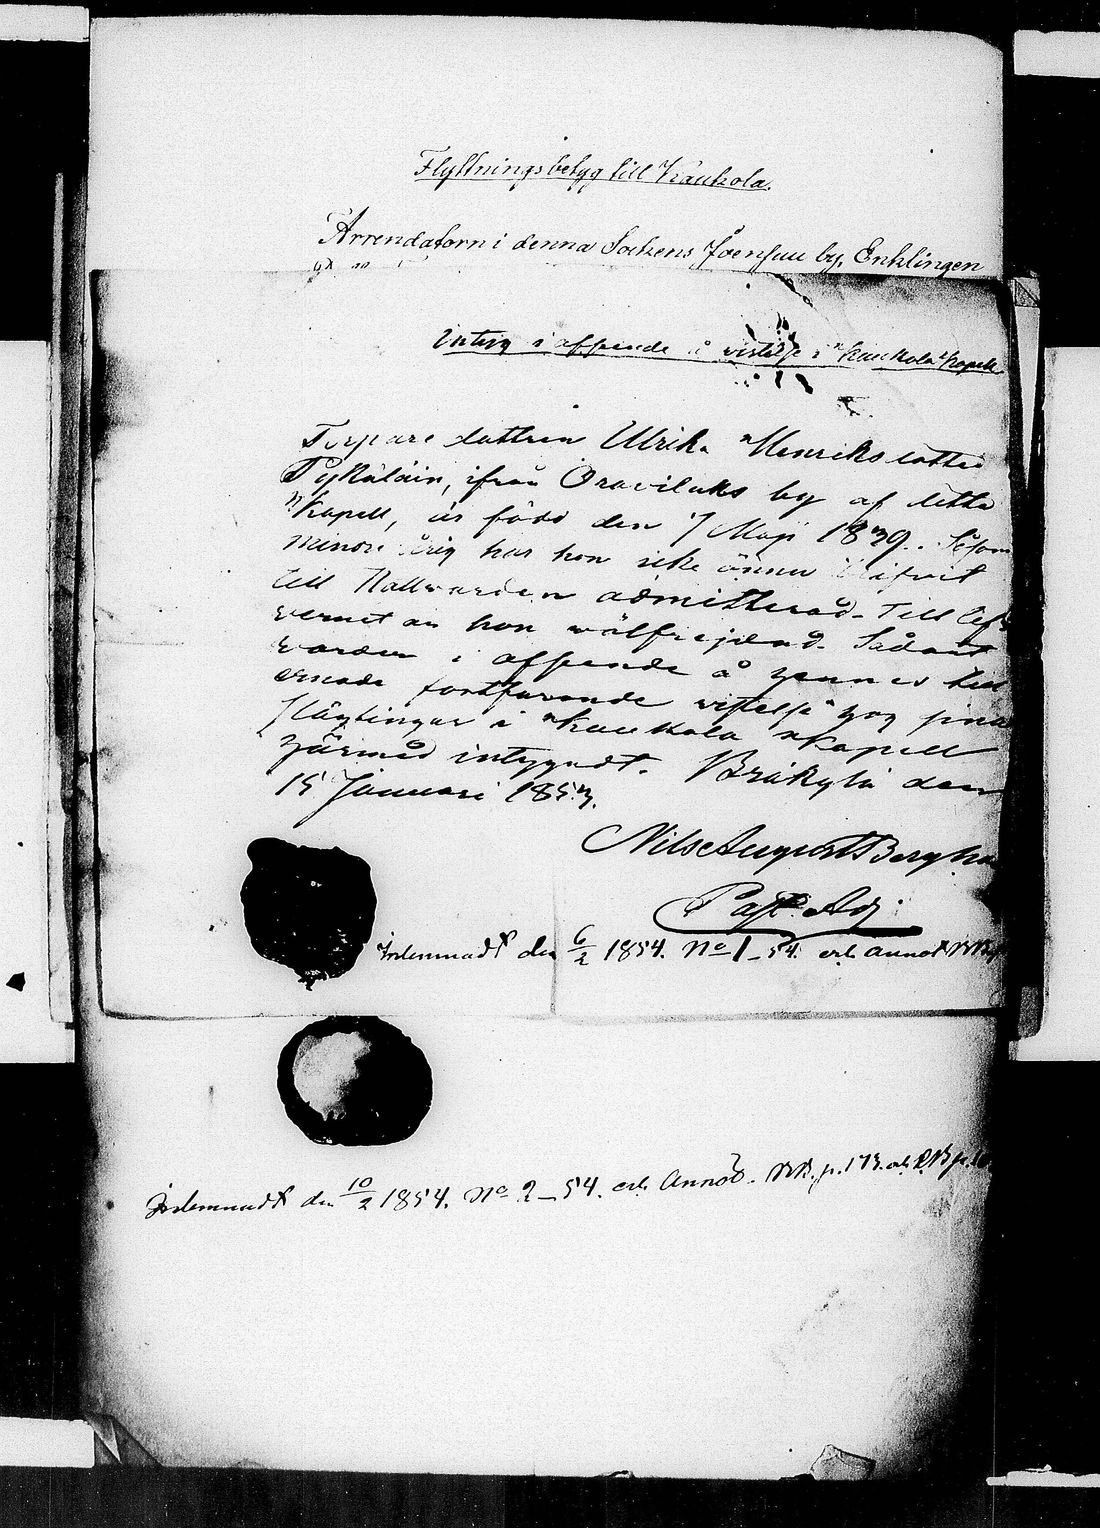 Flyttningsbetyg till Kaukola.
Arrendatorn i denna Sockens Joensuu by, Enklingen
Intyg i afseende å vistelse i Kaukola Kapell
Torpare dottren Ulrika Henriks dotter
Pyykäläin, ifrån Oravilaks by af detta
Kapell, är född den 7 Maji 1839. Såsom
minorårig har hon icke ännu blifvit
till Nattvarden admitterad. Till lef-
vernet är hon wälfrejdad. Sådant
warder i afseende å hennes till
ernade fortfarande vistelse hos sina
slägtingar i Kaukola Kapell
härmed intygadt. Bräkylä den
15 Januari 1853.
Nils August Bergh
Past. Adj.
Inlemnadt den 6/2 1854. No 1-54. och annot.
Inlemnadt den 10/2 1854. No 2-54. och Annot. p. 173. och